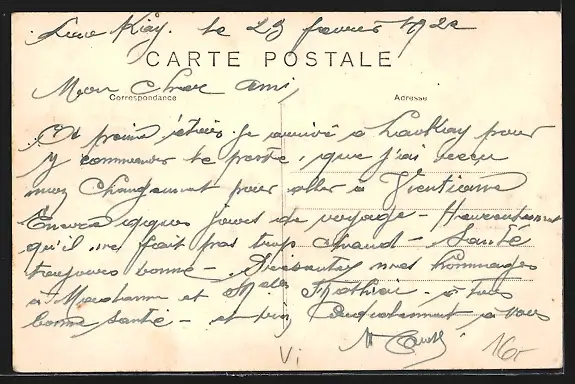 le 23 février 1922
CARTE POSTALE
Mon Cher Ami,
Correspondance
Adresse
à peine je arrivé à pour
y commencer le poste, que j'ai recu
mon Changement pour aller à Vientiane
Encore qques jours de voyage - Heureusement
qu'il ne fait pas trop chaud - Santé
toujours bonne - Présentez mes hommages
à Madame et Mathieu - à tous
bonne santé - et bien à vous
Vi
160r